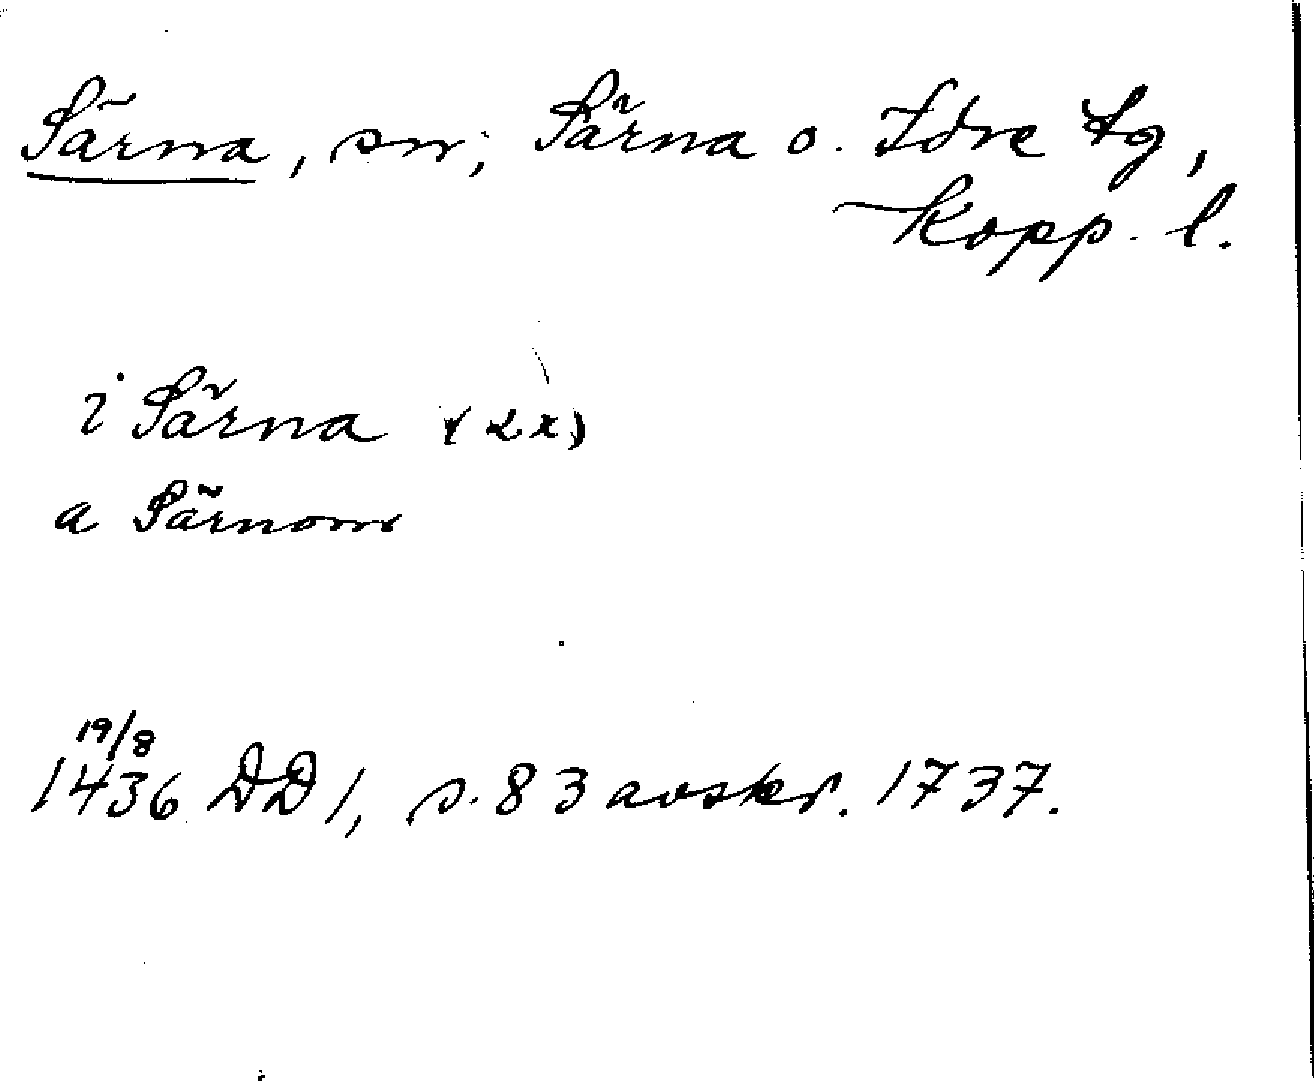 Särna, sn; Särna o. Idre tg,
Kopp. l.
i Särna (2x)
a Särnom
19/8
1436 DD 1, s. 83 avskr. 1737.